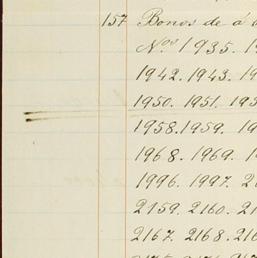 157 Bonos de á
Nos 1935.
1942. 1943.
1950. 1951. 195
1958. 1959.
1968. 1969.
1996. 1997. 2
2159. 2160. 21
2167. 2168. 216